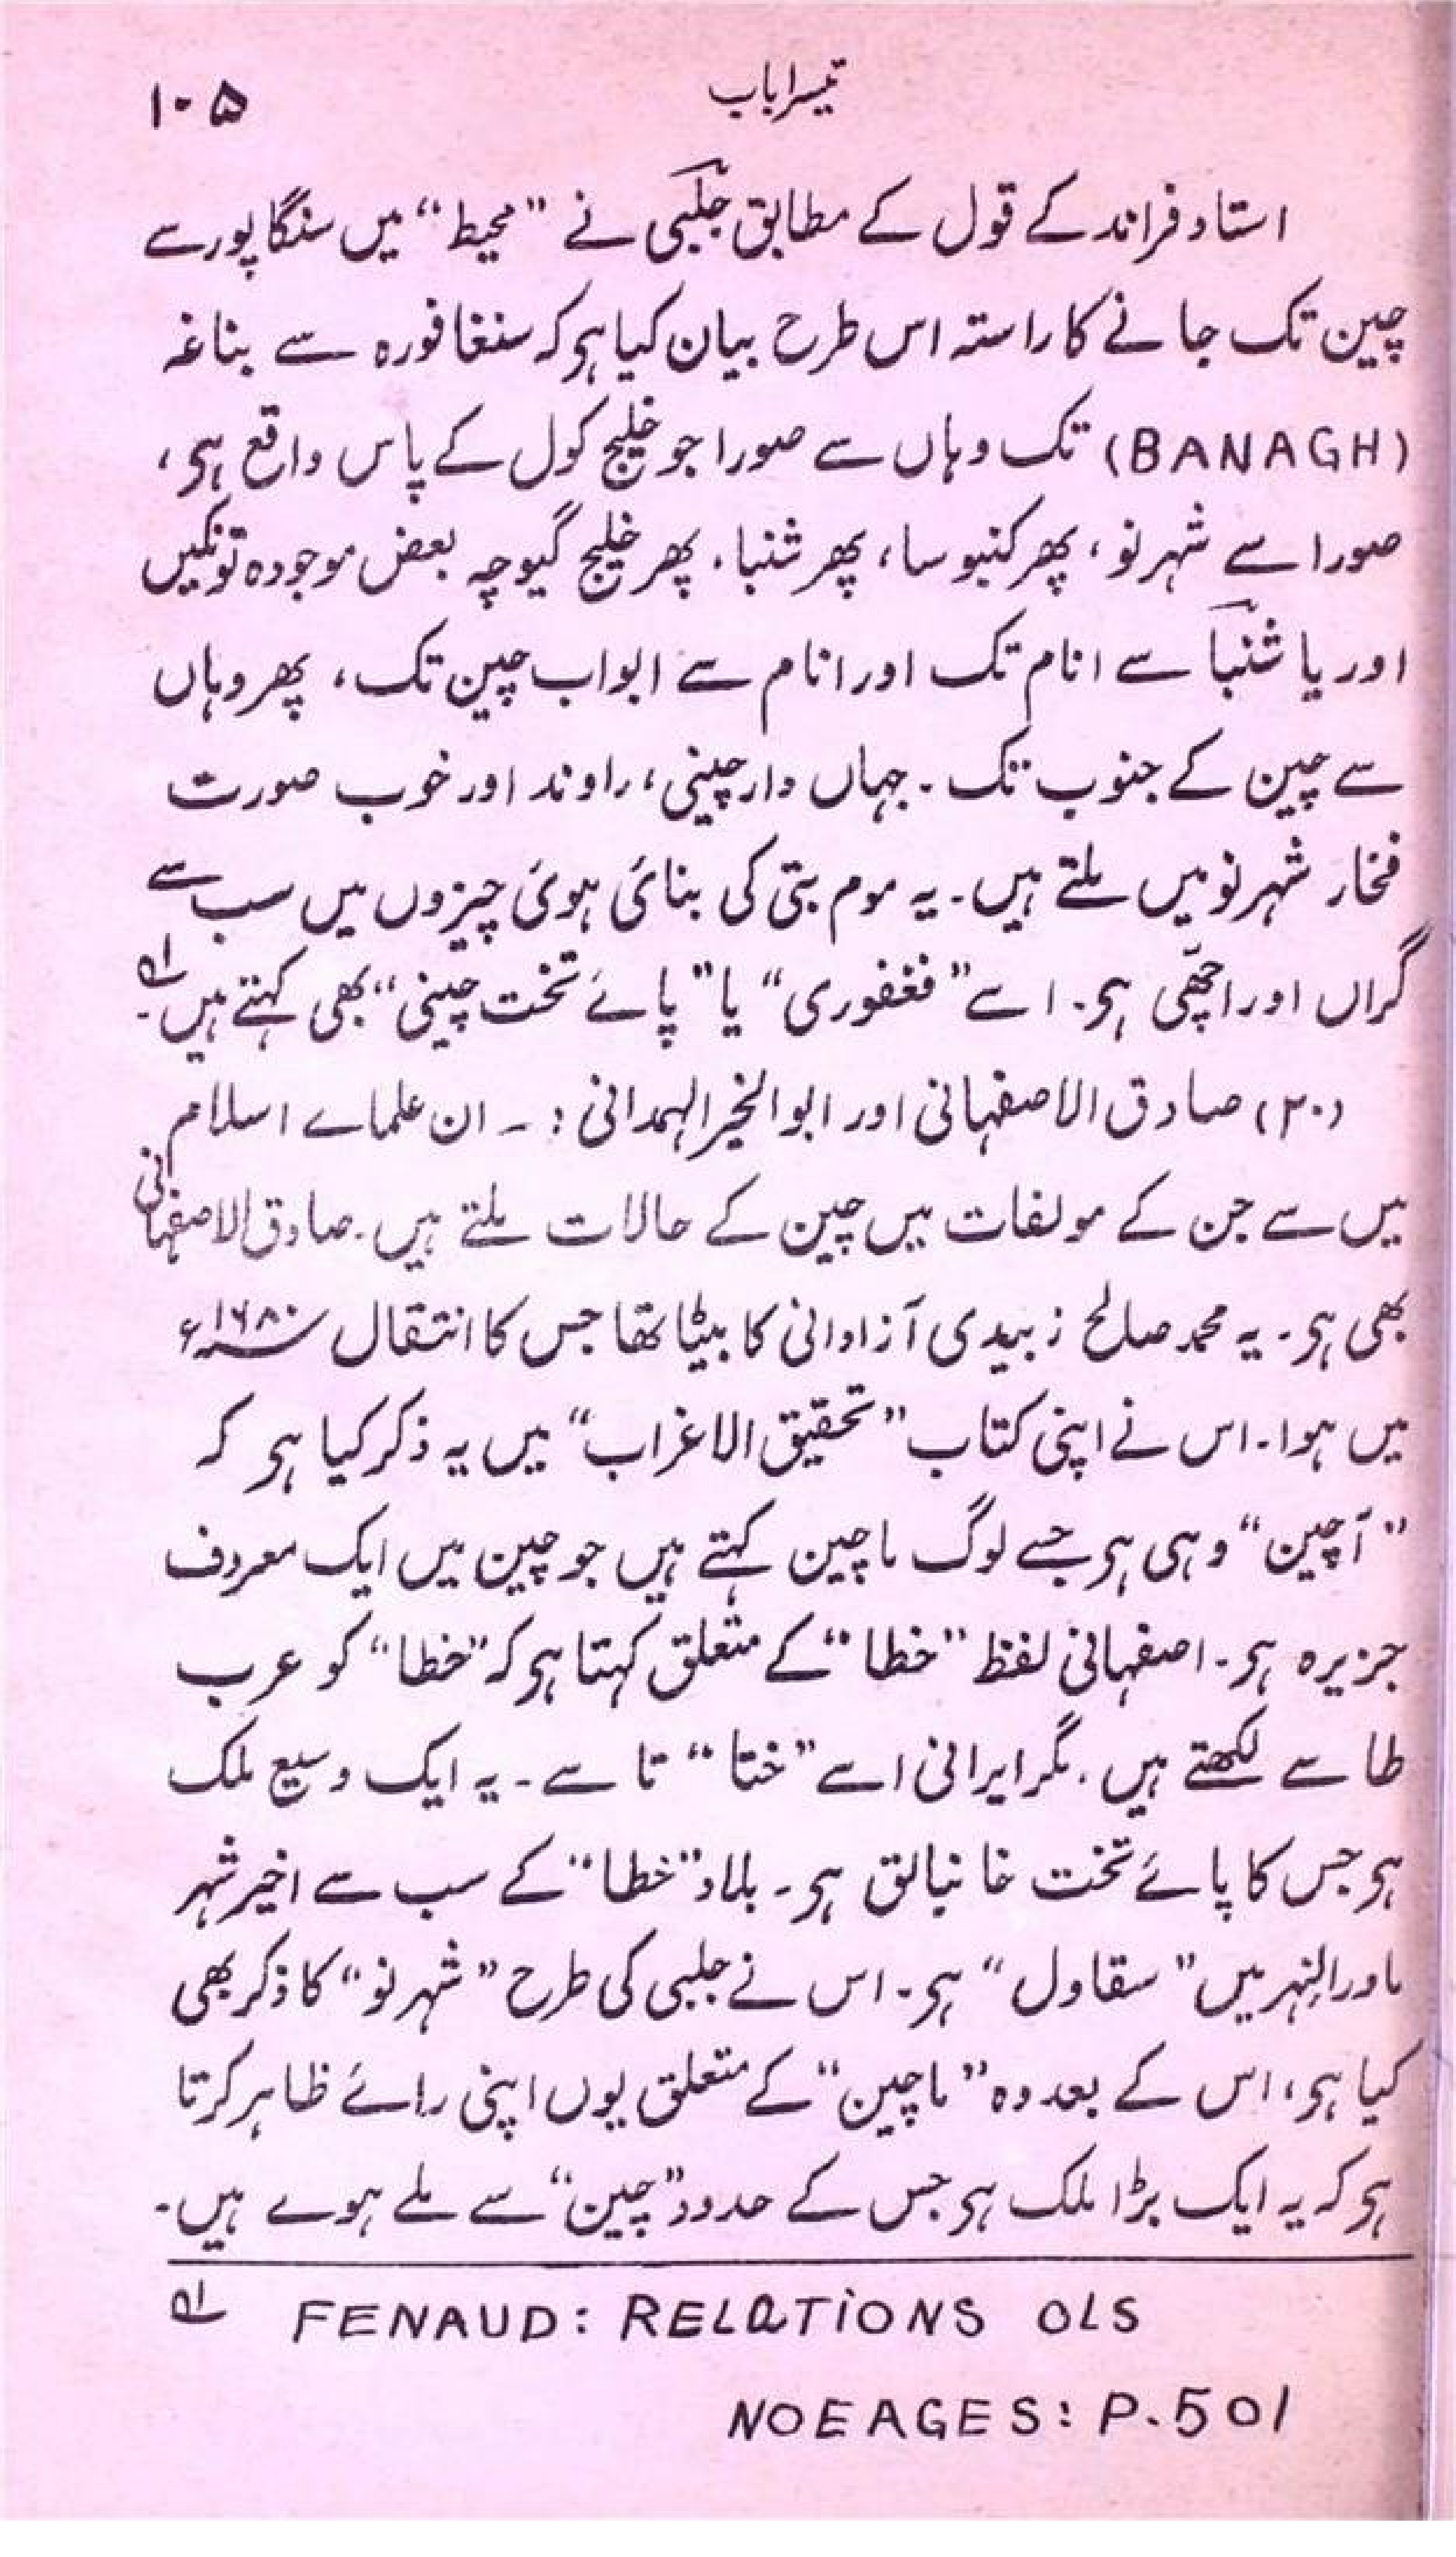 تیسرا باب
۱۰۵
استاد فراند کے قول کے مطابق چلَپی نے ”محیط“ میں سنگاپور سے
چین تک جانے کا راستہ اس طرح بیان کیا ہو کہ سنغافورہ سے بناغہ
(BANAGH) تک وہاں سے صورا جو خلیج کول کے پاس واقع ہی،
صورا سے شہر نو، پھر کنبوسا، پھر شنبا، پھر خلیج گیوچہ بعض موجودہ تونکیں
اور یا شنبا سے انام تک اور انام سے ابواب چین تک، پھر وہاں
سے چین کے جنوب تک۔ جہاں دارچینی، راوند اور خوب صورت
فخار شہر نو میں ملتے ہیں۔ یہ موم بتی کی بنائ ہوئ چیزوں میں سب سے
گراں اور اچھّی ہو۔ اسے ”فغفوری“ یا ”پائے تخت چینی“ بھی کہتے ہیں۔ لہ
(۲۰) صادق الاصفہانی اور ابوالخیر الہمدانی :۔ ان علمائے اسلام
میں سے جن کے مولفات میں چین کے حالات ملتے ہیں۔ صادق الاصفہانی
بھی ہو۔ یہ محمد صالح زبیدی آزادانی کا بیٹا تھا جس کا انتقال ۱۶۸۰ء
میں ہوا۔ اس نے اپنی کتاب ”تحقیق الاغراب“ میں یہ ذکر کیا ہو کہ
”آچین“ وہی ہو جسے لوگ ماچین کہتے ہیں جو چین میں ایک معروف
جزیرہ ہو۔ اصفہانی لفظ ”خطا“ کے متعلق کہتا ہو کہ ”خطا“ کو عرب
طا سے لکھتے ہیں۔ مگر ایرانی اسے ”ختا“ تا سے۔ یہ ایک وسیع ملک
ہو جس کا پائے تخت خانبالق ہو۔ بلاد ”خطا“ کے سب سے اخیر شہر
ماورالنہر میں ”سقاول“ ہو۔ اس نے چلپی کی طرح ”شہر نو“ کا ذکر بھی
کیا ہو، اس کے بعد وہ ”ماچین“ کے متعلق یوں اپنی رائے ظاہر کرتا
ہو کہ یہ ایک بڑا ملک ہو جس کے حدود ”چین“ سے ملے ہوے ہیں۔
لہ FENAUD: RELATIONS OLS
NOEAGES: P. 501